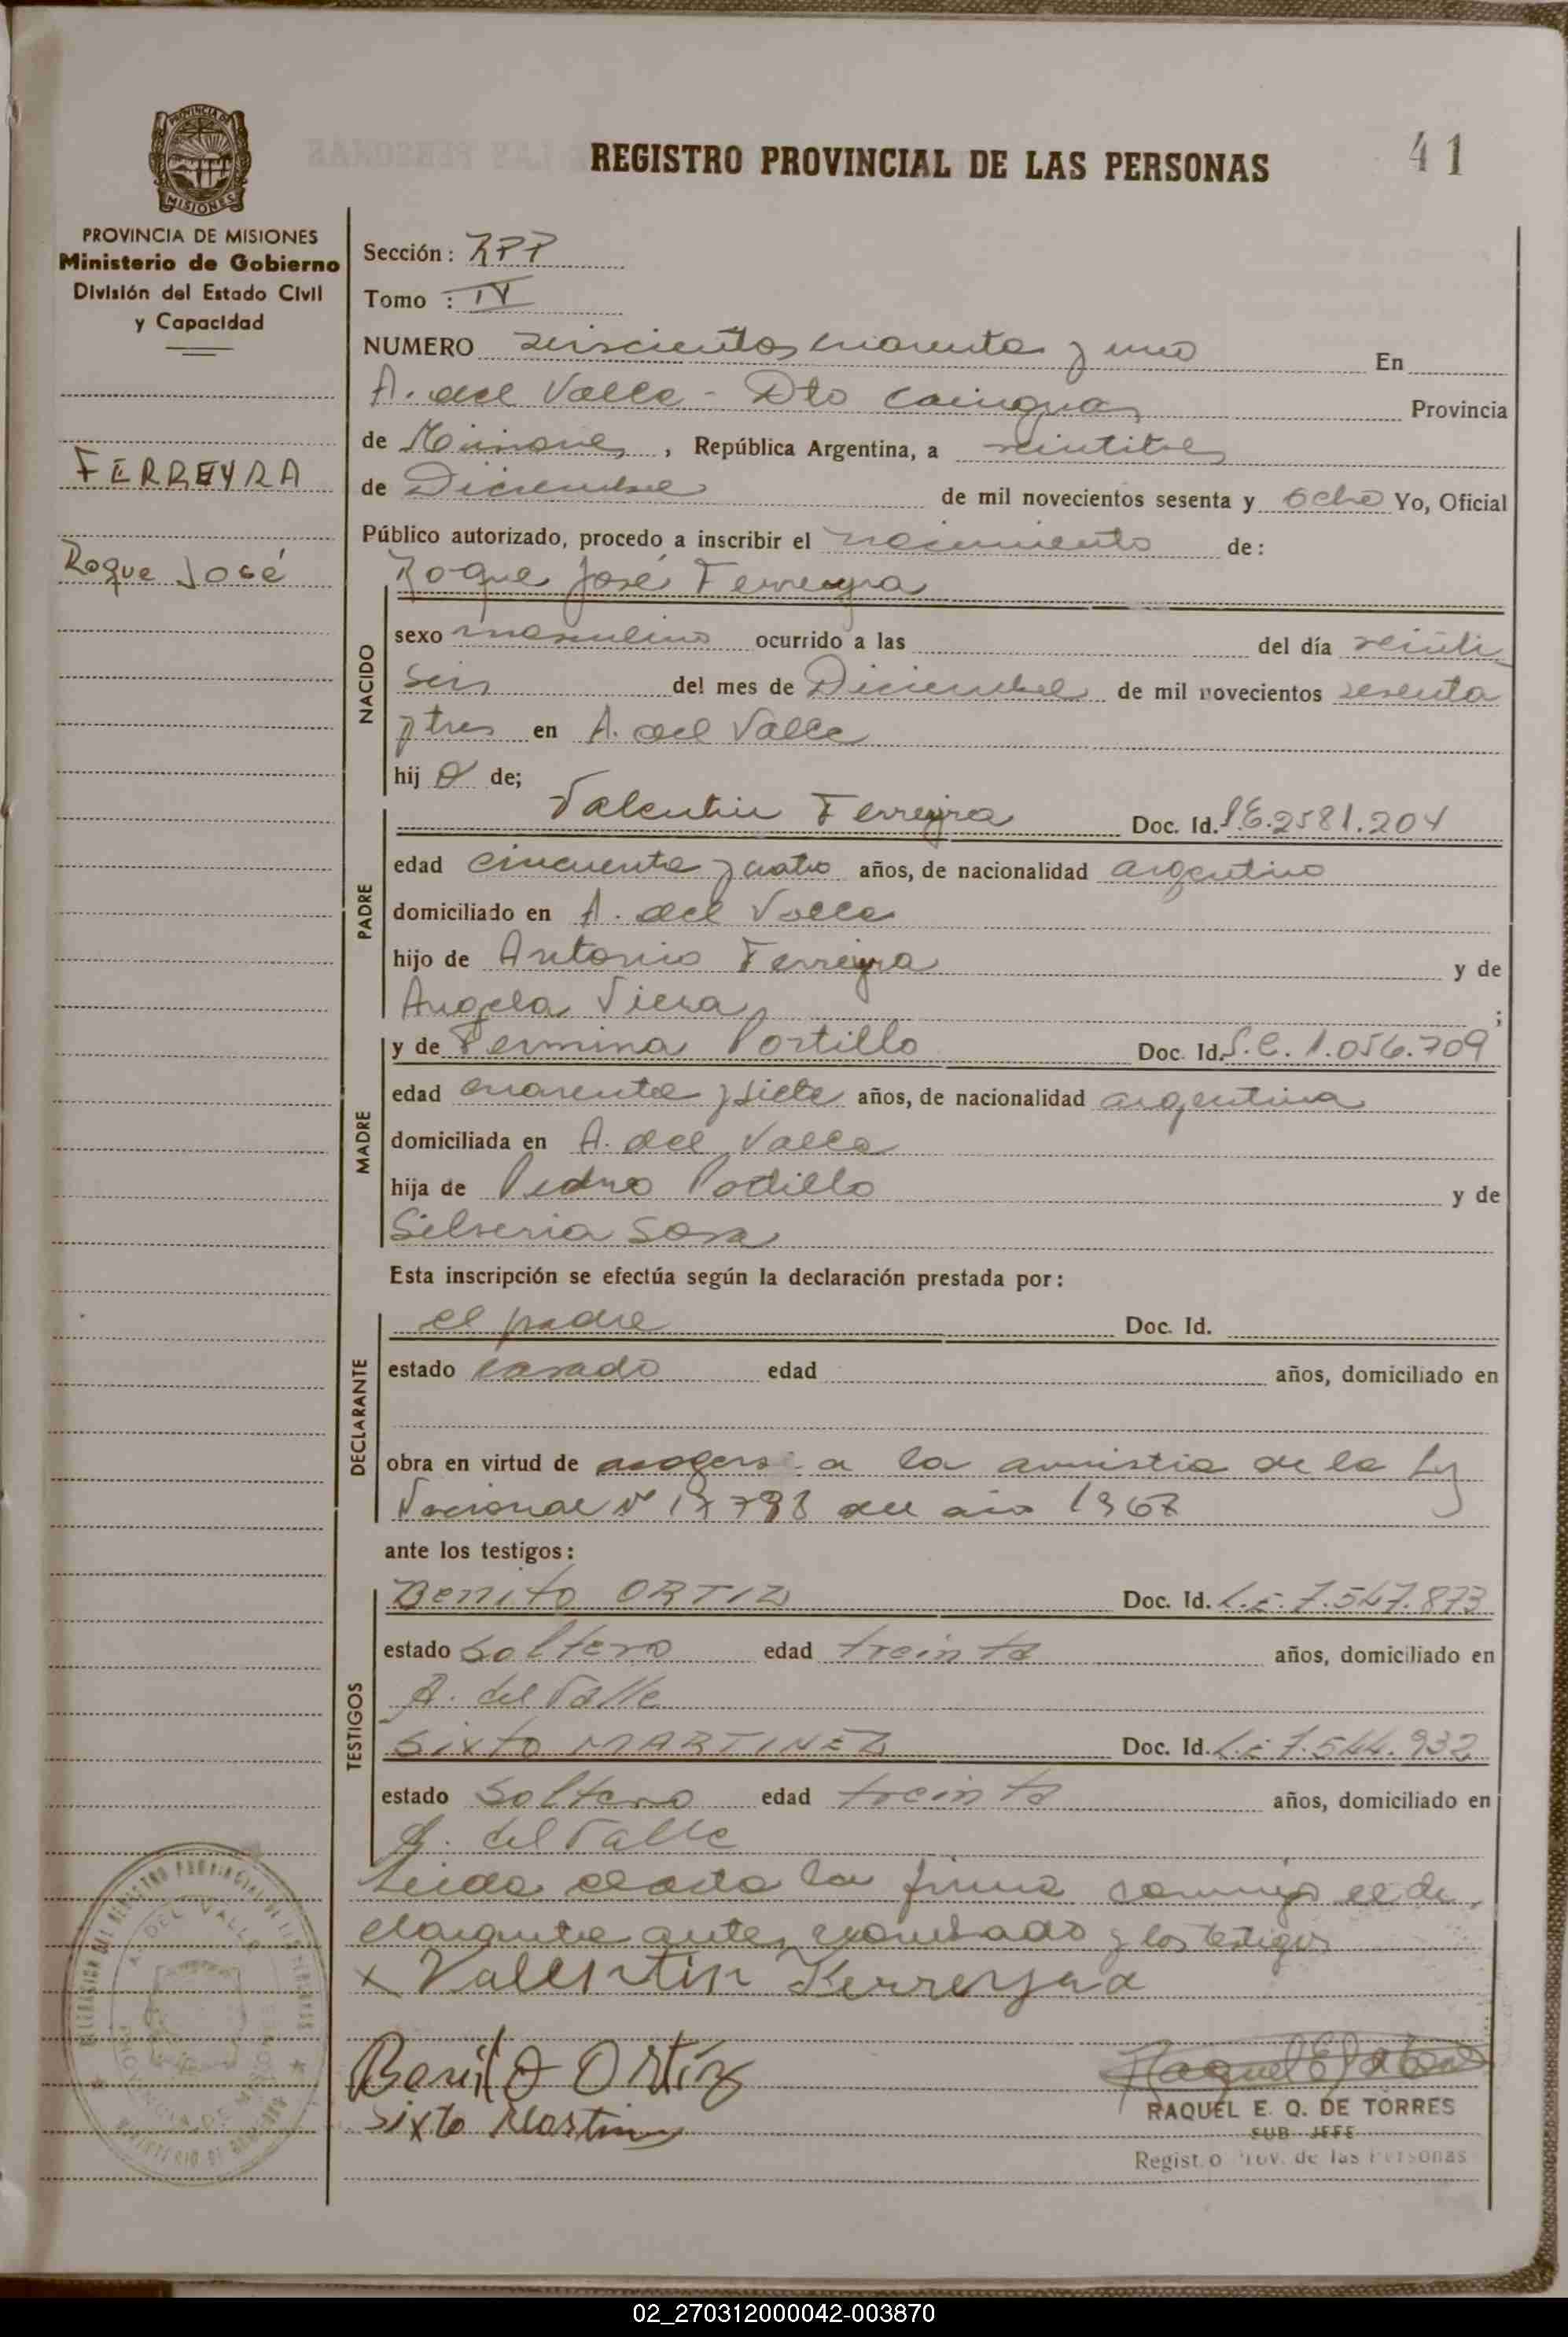 REGISTRO PROVINCIAL DE LAS PERSONAS
41
PROVINCIA DE
MISIONES
PROVINCIA DE MISIONES
Ministerio de Gobierno
División del Estado Civil
y Capacidad
FERREYRA
Roque José
Sección: RPP
Tomo: IV
NUMERO seiscientos cuarenta y uno En
A. del Valle - Dto Cainguas Provincia
de Misiones, República Argentina, a veintitres
de Diciembre de mil novecientos sesenta y ocho Yo, Oficial
Público autorizado, procedo a inscribir el nacimiento de:
Roque José Ferreyra
NACIDO
sexo masculino ocurrido a las del día veinti-
seis del mes de Diciembre de mil novecientos sesenta
y tres en A. del Valle
hijo de;
PADRE
Valentin Ferreyra Doc. Id. L.E. 2581.204
edad cincuenta y cuatro años, de nacionalidad argentino
domiciliado en A. del Valle
hijo de Antonio Ferreyra y de
Angela Viera;
MADRE
y de Fermina Portillo Doc. Id. L.C. 1.056.709
edad cuarenta y siete años, de nacionalidad argentina
domiciliada en A. del Valle
hija de Pedro Portillo y de
Silveria Sosa
Esta inscripción se efectúa según la declaración prestada por:
DECLARANTE
el padre Doc. Id.
estado casado edad años, domiciliado en
obra en virtud de acogerse a la amnistia de la Ley
Nacional Nº 17793 del año 1967
ante los testigos:
TESTIGOS
Benito ORTIZ Doc. Id. L.E. 7.547.873
estado soltero edad treinta años, domiciliado en
A. del Valle
Sixto MARTINEZ Doc. Id. L.E. 7.544.932
estado soltero edad treinta años, domiciliado en
A. del Valle
Leida el acta la firma conmigo el de-
clarante antes nombrado y los testigos
x Valentin Ferreyra
Benito Ortíz
Sixto Martinez
RAQUEL E. Q. DE TORRES
SUB JEFE
Registro Prov. de las Personas
A. DEL VALLE
PROVINCIA DE MISIONES
MINISTERIO DE GOBIERNO
02_270312000042-003870